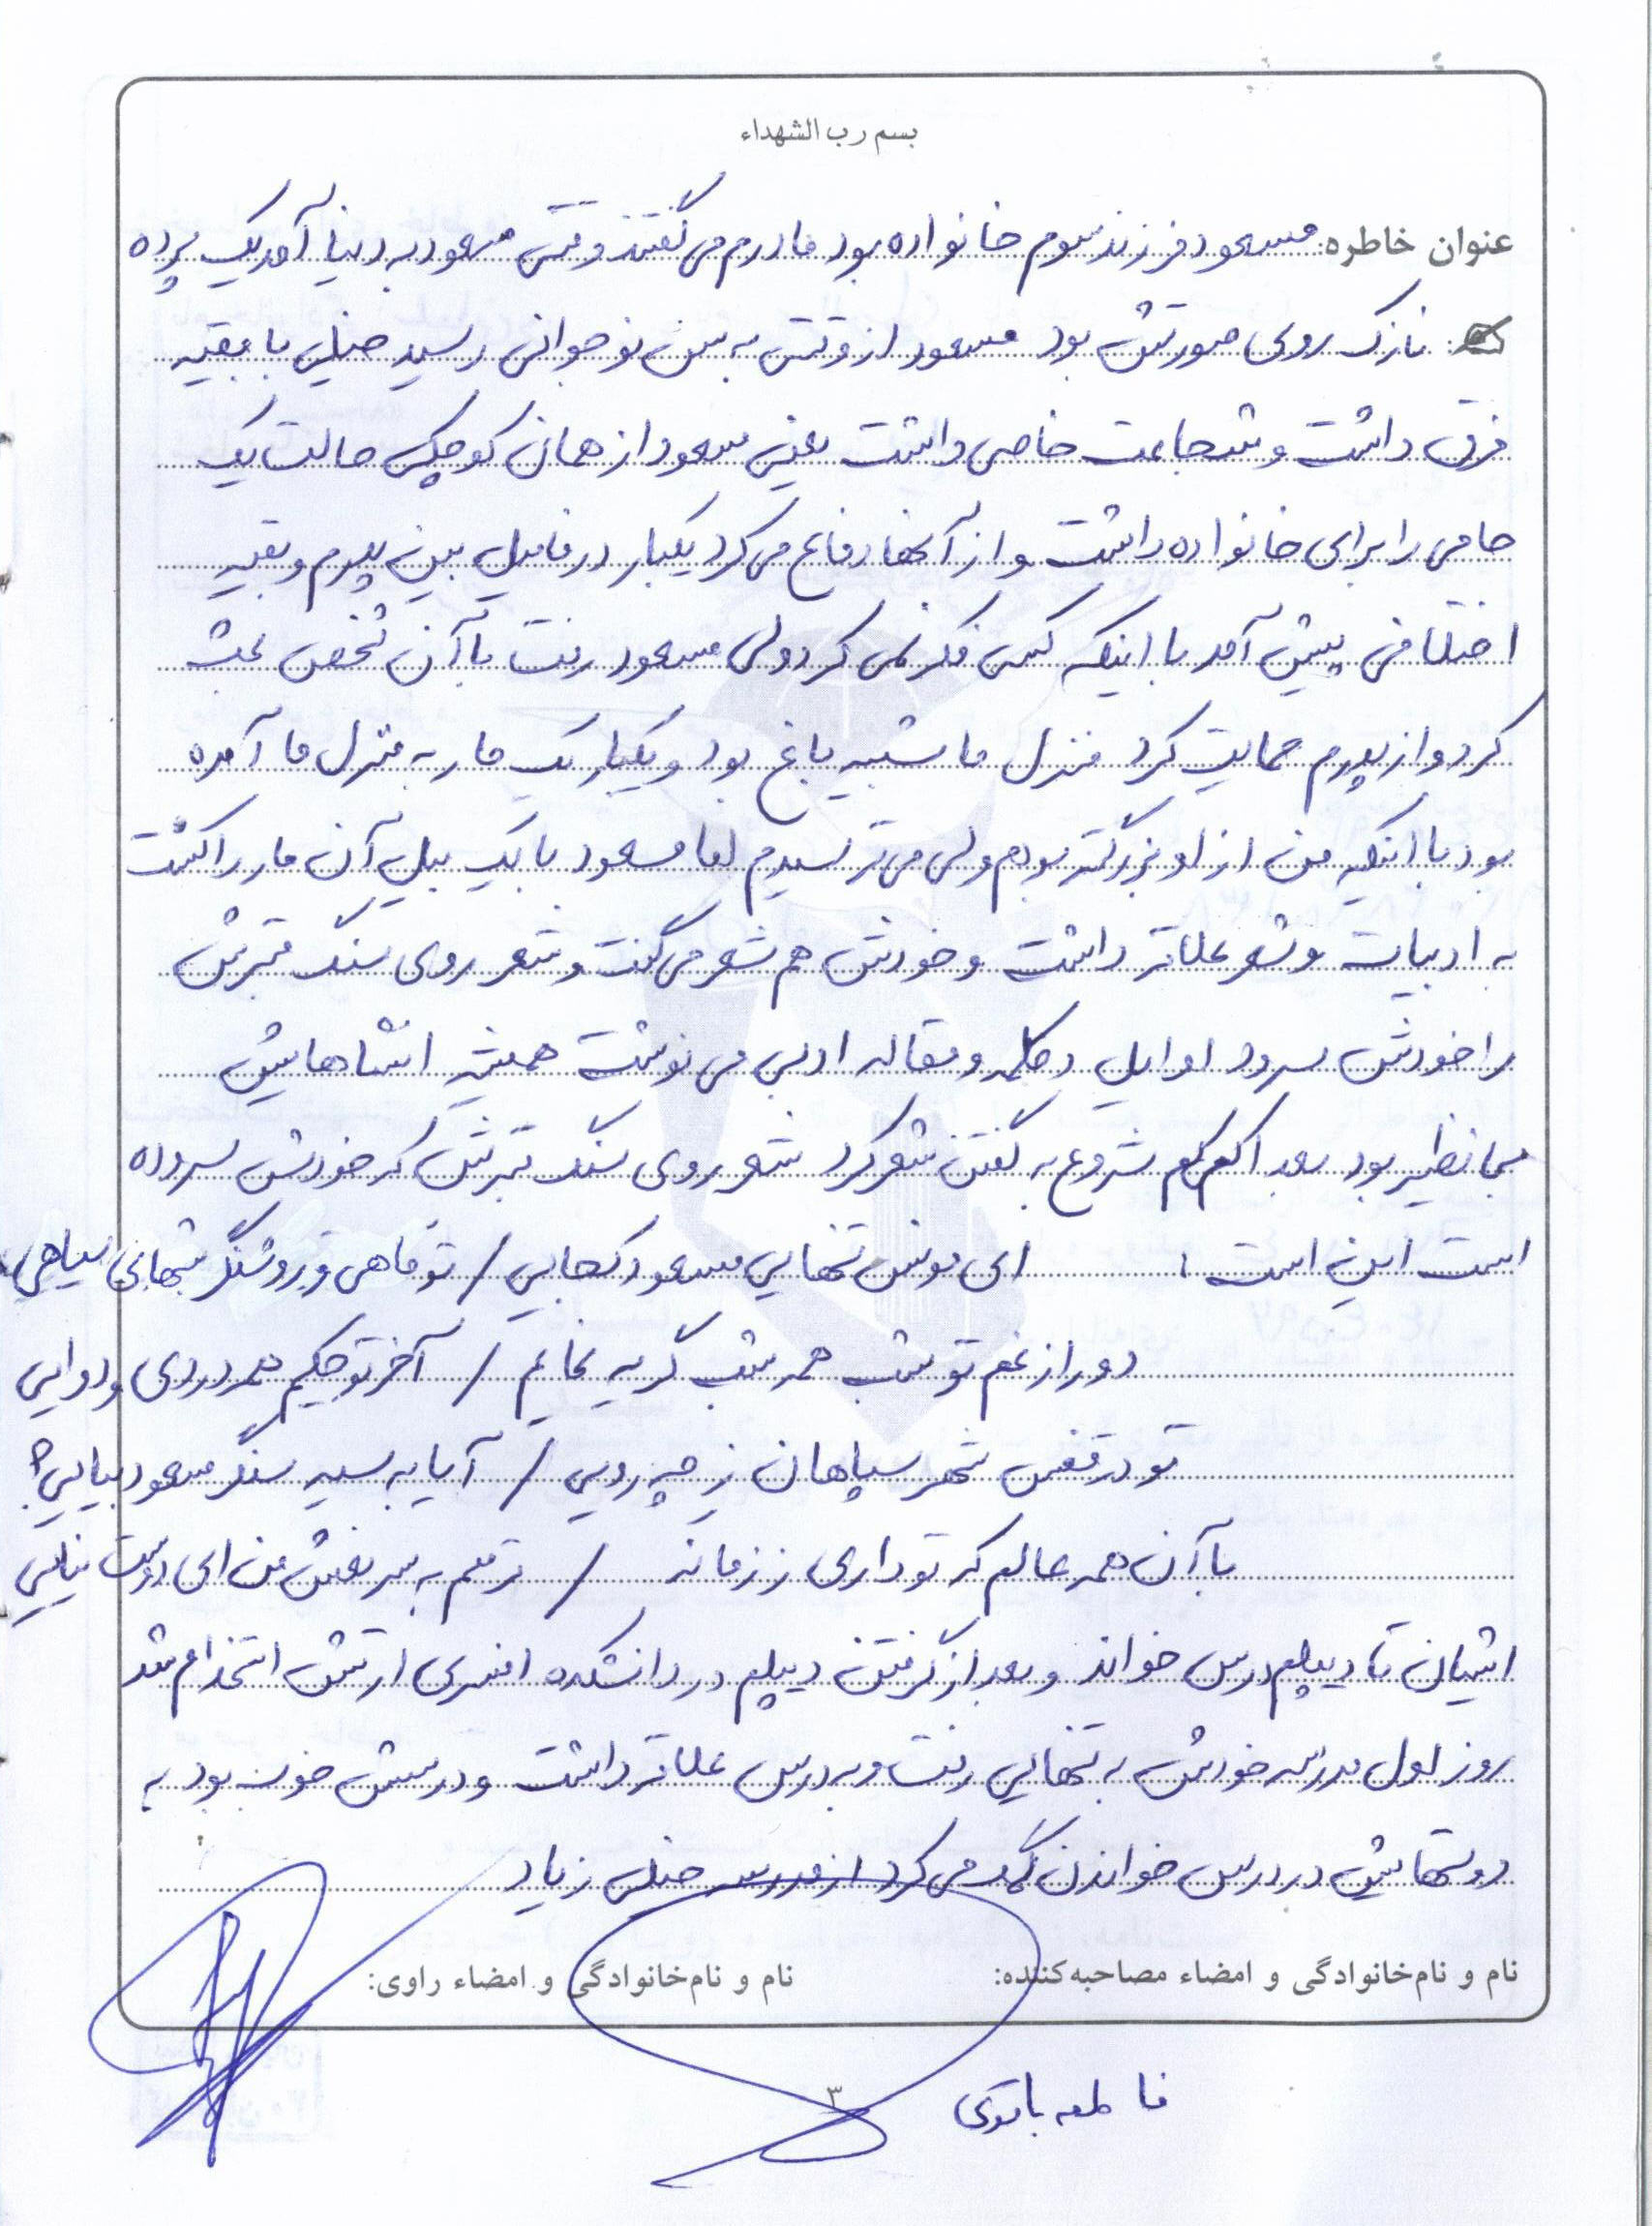 بسم رب الشهداء
عنوان خاطره: مسعود فرزند سوم خانواده بود مادرم می گفتند وقتی مسعود به دنیا آمد یک پرده
نازک روی صورتش بود مسعود از وقتی به سن نوجوانی رسید خیلی با بقیه
فرق داشت و شجاعت خاصی داشت یعنی مسعود از همان کوچکی حالت یک
حامی را برای خانواده داشت و از آنها دفاع می کرد یکبار در فامیل بین پدرم و بقیه
اختلافی پیش آمد با اینکه کسی فکر نمی کرد ولی مسعود رفت با آن شخص بحث
کرد و از پدرم حمایت کرد منزل ما شبیه باغ بود و یکبار یک مار به منزل ما آمده
بود با اینکه من از او بزرگتر بودم ولی می ترسیدم اما مسعود با یک بیل آن مار را کشت
به ادبیات و شعر علاقه داشت و خودش هم شعر می گفت و شعر روی سنگ قبرش
را خودش سرود اوایل دکلمه و مقاله ادبی می نوشت همیشه انشاهایش
بی نظیر بود بعداً کم کم شروع به گفتن شعر کرد شعر روی سنگ قبرش که خودش سروده
است این است: ای مونس تنهایی مسعود کجایی / تو ماهی و روشنگر شبهای سیاهی
دور از غم تو شب همه شب گریه نمایم / آخر تو حکیم همه دردی و دوایی
تو در قفس شهر سپاهان ز چه رویی / آیا به سیه سنگر مسعود بیایی؟
با آن همه عالم که تو داری ز زمانه / ترسم به سر نعش من ای دوست نیایی
ایشان تا دیپلم درس خواند و بعد از گرفتن دیپلم در دانشکده افسری ارتش استخدام شد
روز اول مدرسه خودش به تنهایی رفت و به درس علاقه داشت و درسش خوب بود به
دوستهایش در درس خواندن کمک می کرد از مدرسه خیلی زیاد
نام و نام‌خانوادگی و امضاء مصاحبه‌کننده: نام و نام‌خانوادگی و امضاء راوی:
فاطمه
۳